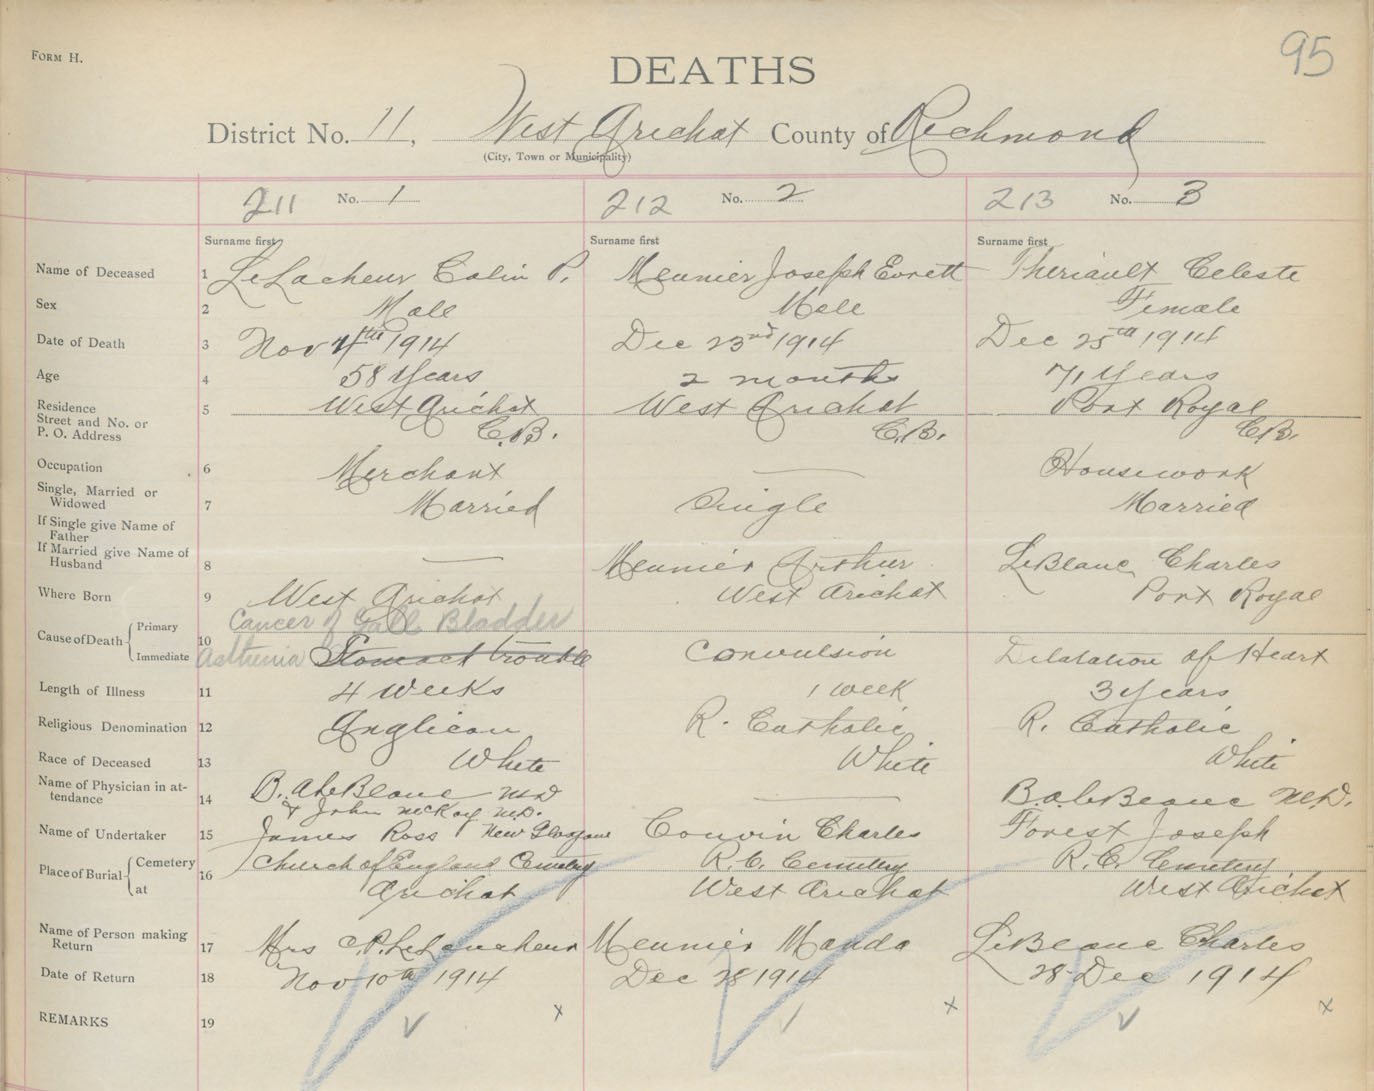 FORM H.
95
DEATHS
District No. 11, West Arichat County of Richmond
(City, Town or Municipality)
211 No. 1 212 No. 2 213 No. 3
Surname first Surname first Surname first
Name of Deceased 1 LeLacheur Colin P. Meunier Joseph Evrett Theriault Celeste
Sex 2 Male Male Female
Date of Death 3 Nov 4th 1914 Dec 23rd 1914 Dec 25th 1914
Age 4 58 Years 2 months 71 Years
Residence
Street and No. or
P. O. Address
5 West Arichat West Arichat Port Royal
C.B. C.B. C.B.
Occupation 6 Merchant — Housework
Single, Married or
Widowed
7 Married Single Married
If Single give Name of
Father
If Married give Name of
Husband
8 — Meunier Arthur LeBlanc Charles
Where Born 9 West Arichat West Arichat Port Royal
Cause of Death Primary Cancer of Gall Bladder
10
Immediate Asthenia Stomach trouble Convulsion Dilatation of Heart
Length of Illness 11 4 Weeks 1 week 3 years
Religious Denomination 12 Anglican R. Catholic R. Catholic
Race of Deceased 13 White White White
Name of Physician in at-
tendance
14 B. A. LeBlanc M.D — B. A. LeBlanc M.D.
& John McKay M.D.
New Glasgow
Name of Undertaker 15 James Ross Couvin Charles Forest Joseph
Place of Burial Cemetery 16 Church of England Cemetry R.C. Cemetery R.C. Cemetery
at Arichat West Arichat West Arichat
Name of Person making
Return
17 Mrs C.P. LeLacheur Meunier Manda LeBlanc Charles
Date of Return 18 Nov 10th 1914 Dec 28 1914 28 Dec 1914
REMARKS 19 x x x